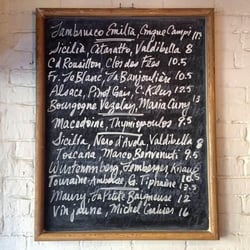 Lambrusco Emilia, Cinque Campi
Sicilia, Cataratto, Valdibella 8
Cd Rousillon, Clos des Fées 10.5
Fr. Jo Blanc, La Banjoulière 10.5
Alsace, Pinot Gris, 12.5
Bourgogne Vezelay, Maria Cuny 13
Macedoine, Thymiopoulos 9.5
Sicilia, Nero d'Avola, Valdibella 8
Toscana, Marco Benvenuti 9.5
Würtemberg, Lemberger, Knauß
Touraine-Amboise, G. Tiphaine 13.5
Maury, La Petite Baigneuse 12
Vin jaune, Michel Gahier 16